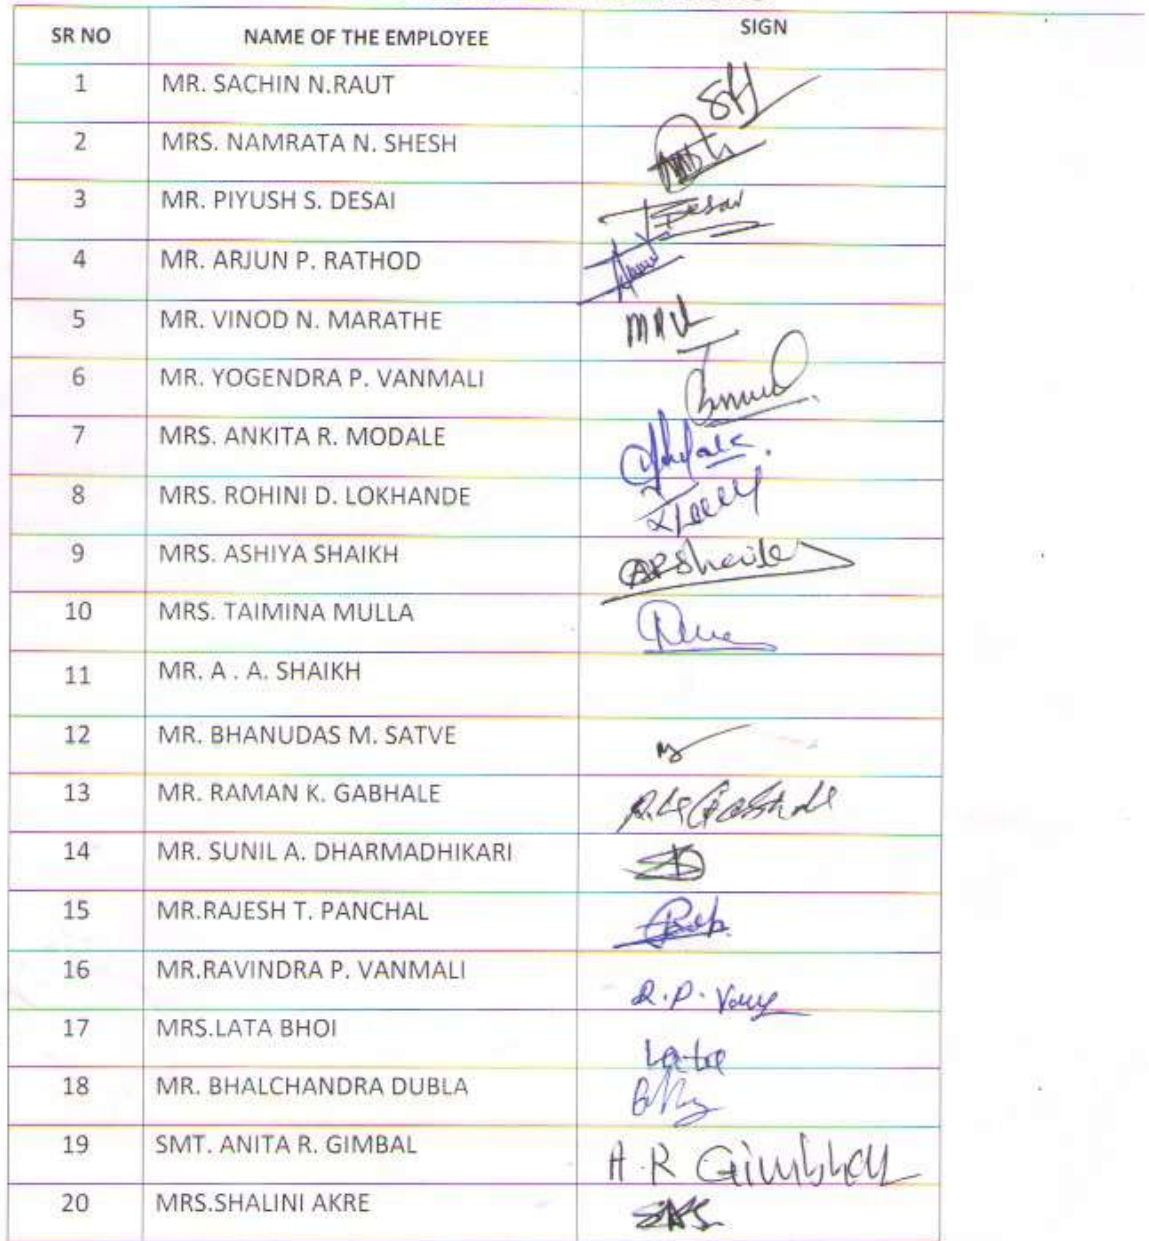 SR NO NAME OF THE EMPLOYEE SIGN
1 MR. SACHIN N.RAUT
2 MRS. NAMRATA N. SHESH
3 MR. PIYUSH S. DESAI Desai
4 MR. ARJUN P. RATHOD
5 MR. VINOD N. MARATHE
6 MR. YOGENDRA P. VANMALI
7 MRS. ANKITA R. MODALE
8 MRS. ROHINI D. LOKHANDE
9 MRS. ASHIYA SHAIKH
10 MRS. TAIMINA MULLA
11 MR. A . A. SHAIKH
12 MR. BHANUDAS M. SATVE
13 MR. RAMAN K. GABHALE
14 MR. SUNIL A. DHARMADHIKARI
15 MR.RAJESH T. PANCHAL
16 MR.RAVINDRA P. VANMALI R.P.
17 MRS.LATA BHOI Lata
18 MR. BHALCHANDRA DUBLA
19 SMT. ANITA R. GIMBAL A.R
20 MRS.SHALINI AKRE